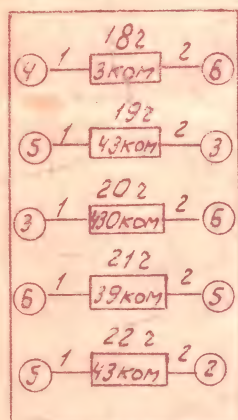 18г
4 1 3ком 2 6
19г
5 1 43ком 2 3
20г
3 1 430ком 2 6
21г
6 1 39ком 2 5
22г
5 1 43ком 2 2